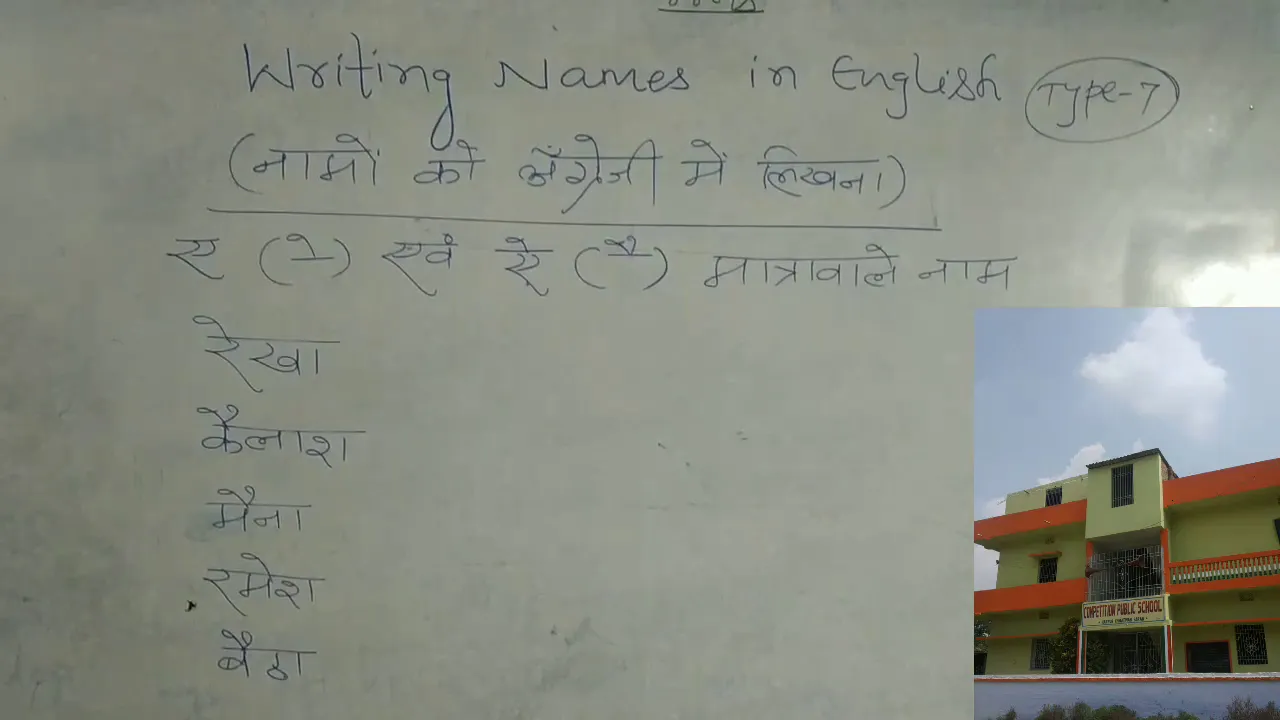 Writing Names in English Type-7
(नामों को अँग्रेजी में लिखना)
ए (े) एवं ऐ (ै) मात्रावाले नाम
रेखा
कैलाश
मैना
रमेश
बैठा
COMPETITION PUBLIC SCHOOL